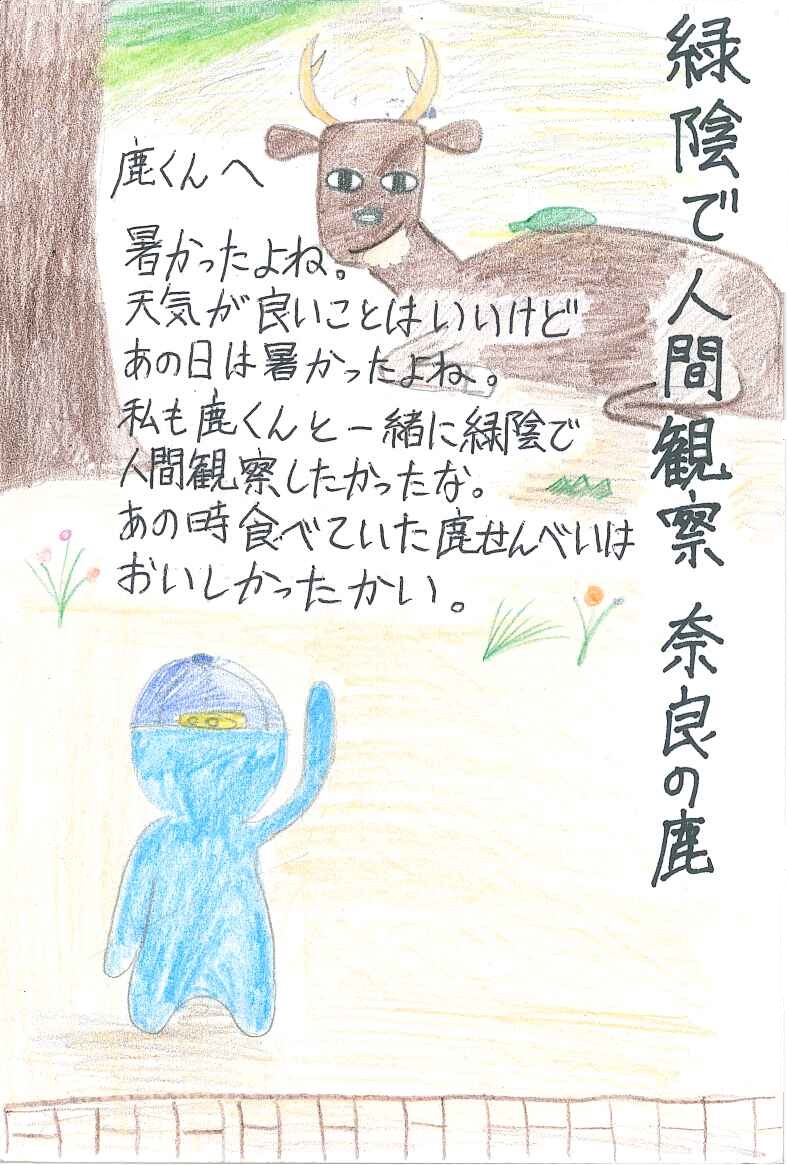 緑陰で人間観察 奈良の鹿
鹿くんへ
暑かったよね。
天気が良いことはいいけど
あの日は暑かったよね。
私も鹿くんと一緒に緑陰で
人間観察したかったな。
あの時食べていた鹿せんべいは
おいしかったかい。